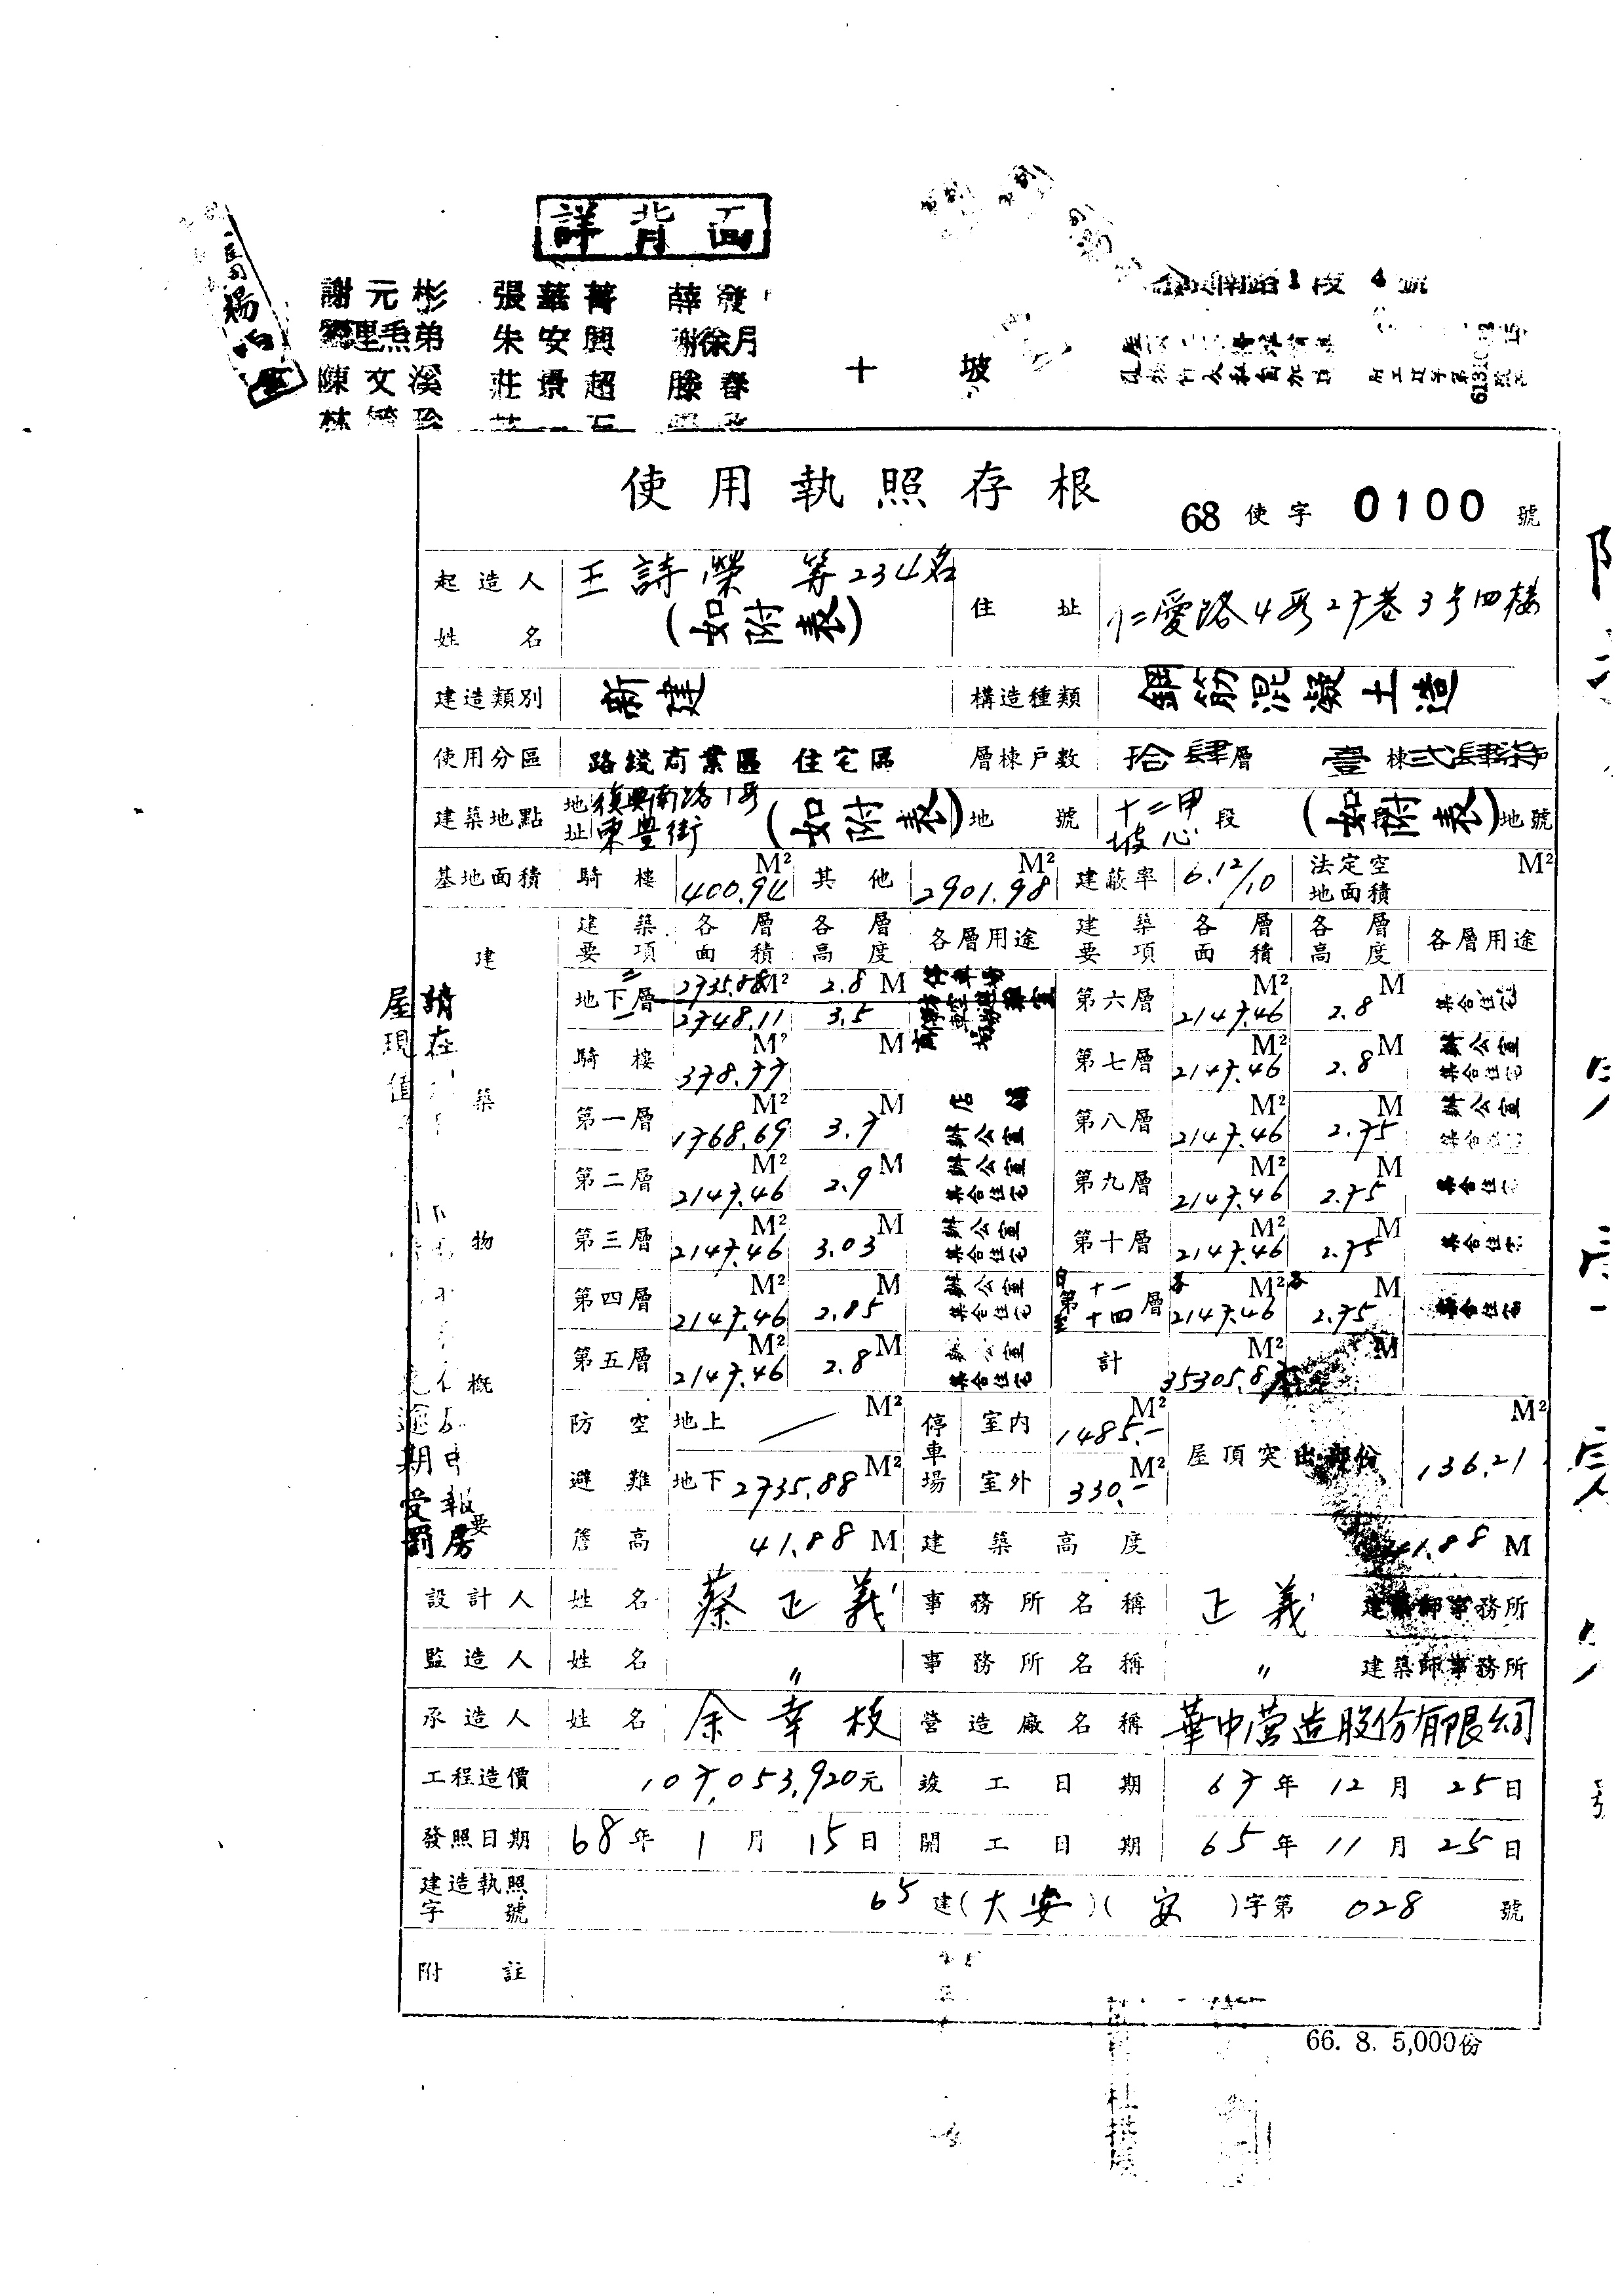 詳背面
謝元彬 張華菁 薛發
弟 朱安興 謝徐月
陳文溪 莊景超 滕春
林
十 坡
南路1段 4號
使用執照存根
68 使字 0100 號
起造人姓名 王詩榮 等234名 (如附表) 住址 仁愛路4段27巷3号四樓
建造類別 新建 構造種類 鋼筋混凝土造
使用分區 路綫商業區 住宅區 層棟戶數 拾肆層 壹棟弍肆柒戶
建築地點 地址 復興南路1段 東豐街 (如附表) 地號 十二甲 坡心 段 (如附表)地號
基地面積 騎樓 400.94 M² 其他 2901.98 M² 建蔽率 6.12/10 法定空地面積 M²
建築物概要
建築要項 各層面積 各層高度 各層用途 建築要項 各層面積 各層高度 各層用途
地下二層 2735.88 M² 2.8 M 第六層 2147.46 M² 2.8 M 集合住宅
地下一層 2748.11 3.5
騎樓 378.77 M² M 第七層 2147.46 M² 2.8 M 辦公室 集合住宅
第一層 1768.69 M² 3.7 M 店舖 辦公室 第八層 2147.46 M² 2.75 M 辦公室 集合住宅
第二層 2147.46 M² 2.9 M 辦公室 集合住宅 第九層 2147.46 M² 2.75 M 集合住宅
第三層 2147.46 M² 3.03 M 辦公室 集合住宅 第十層 2147.46 M² 2.75 M 集合住宅
第四層 2147.46 M² 2.85 M 辦公室 集合住宅 自第十一至十四層 各2147.46 M² 各2.75 M 集合住宅
第五層 2147.46 M² 2.8 M 辦公室 集合住宅 計 35305.87 M² M
防空避難 地上 / M² 停車場 室內 1485.- M² 屋頂突出部份 136.21 M²
地下 2735.88 M² 室外 330.- M²
簷高 41.88 M 建築高度 41.88 M
設計人 姓名 蔡正義 事務所名稱 正義 建築師事務所
監造人 姓名 〃 事務所名稱 〃 建築師事務所
承造人 姓名 余幸枝 營造廠名稱 華中营造股份有限公司
工程造價 107,053,920元 竣工日期 67年12月25日
發照日期 68年1月15日 開工日期 65年11月25日
建造執照字號 65建(大安)(安)字第 028 號
附註
66. 8. 5,000份